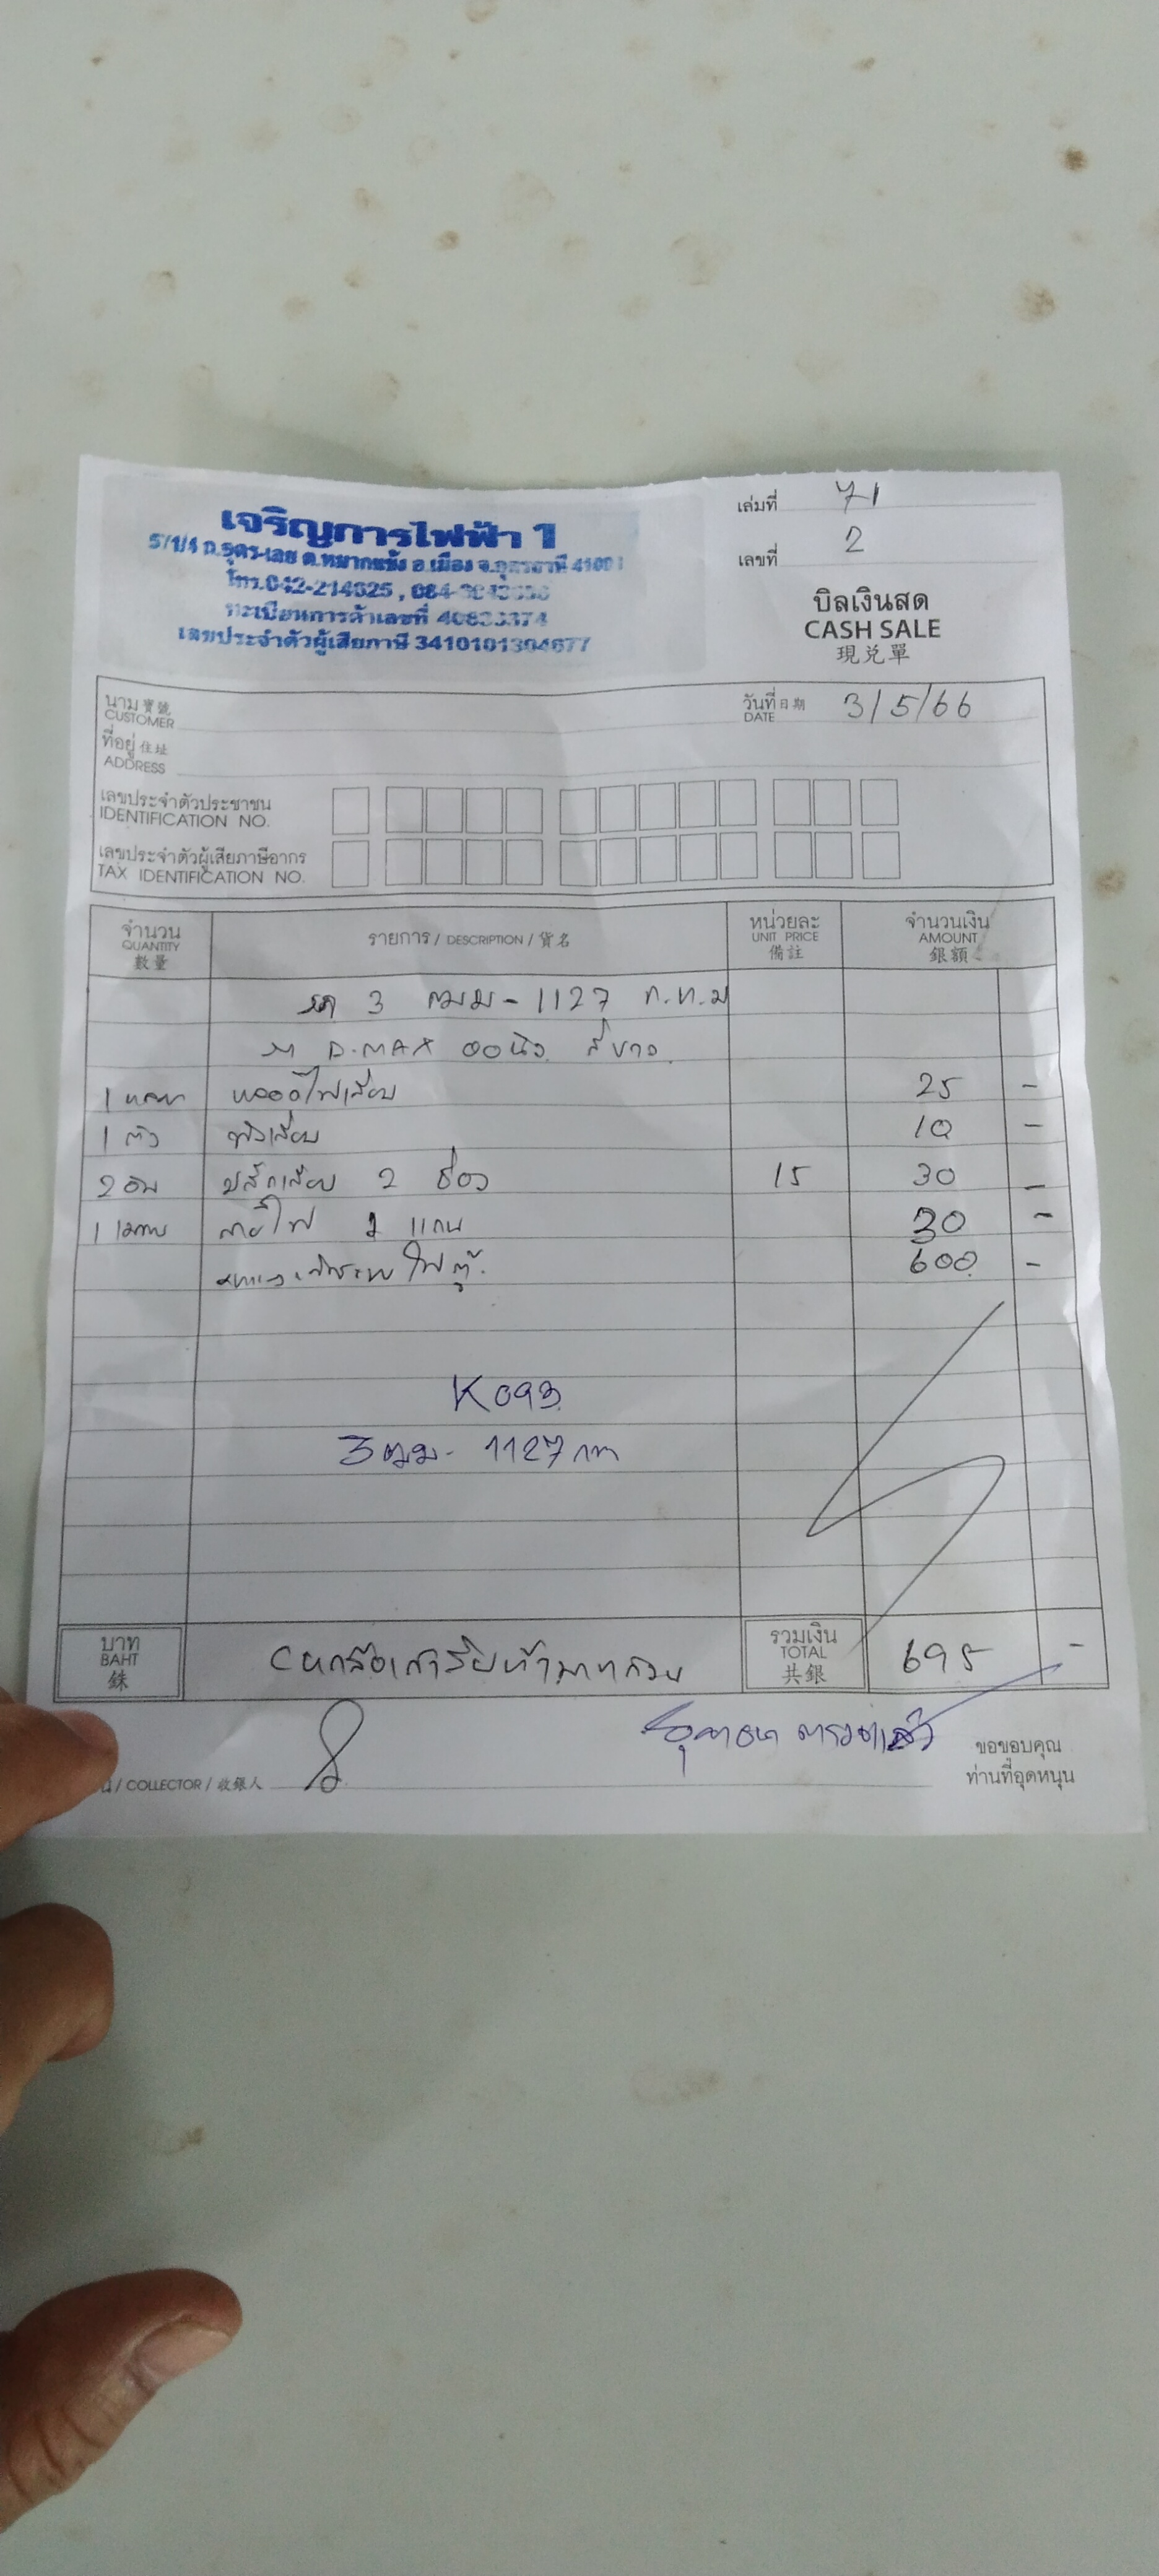 เจริญการไฟฟ้า 1
ถ.อุดร-เลย ต.หมากแข้ง อ.เมือง จ.อุดรธานี
โทร.042-214625 , 084-
ทะเบียนการค้าเลขที่
เลขประจำตัวผู้เสียภาษี 3410101304677
เล่มที่ 71
เลขที่ 2
บิลเงินสด
CASH SALE
現兑單
นาม 寶號
CUSTOMER
วันที่ 日期 3/5/66
DATE
ที่อยู่ 住址
ADDRESS
เลขประจำตัวประชาชน
IDENTIFICATION NO.
เลขประจำตัวผู้เสียภาษีอากร
TAX IDENTIFICATION NO.
จำนวน
QUANTITY
數量
รายการ / DESCRIPTION / 貨名
หน่วยละ
UNIT PRICE
備註
จำนวนเงิน
AMOUNT
銀額
รถ 3 ฒฒ - 1127 ก.ท.ม
D-MAX สีขาว
1 หลอด หลอดไฟเสียบ 25 -
1 ตัว เสียบ 10 -
2 อัน ปลั๊กเสียบ 2 ช่อง 15 30 -
1 เมตร สายไฟ 2 แกน 30 -
600 -
K093
3ฒฒ - 1127 กท
บาท
BAHT
銖
หกร้อยเก้าสิบห้าบาทถ้วน
รวมเงิน
TOTAL
共銀
695 -
ตรวจแล้ว
/ COLLECTOR / 收銀人
ขอขอบคุณ
ท่านที่อุดหนุน